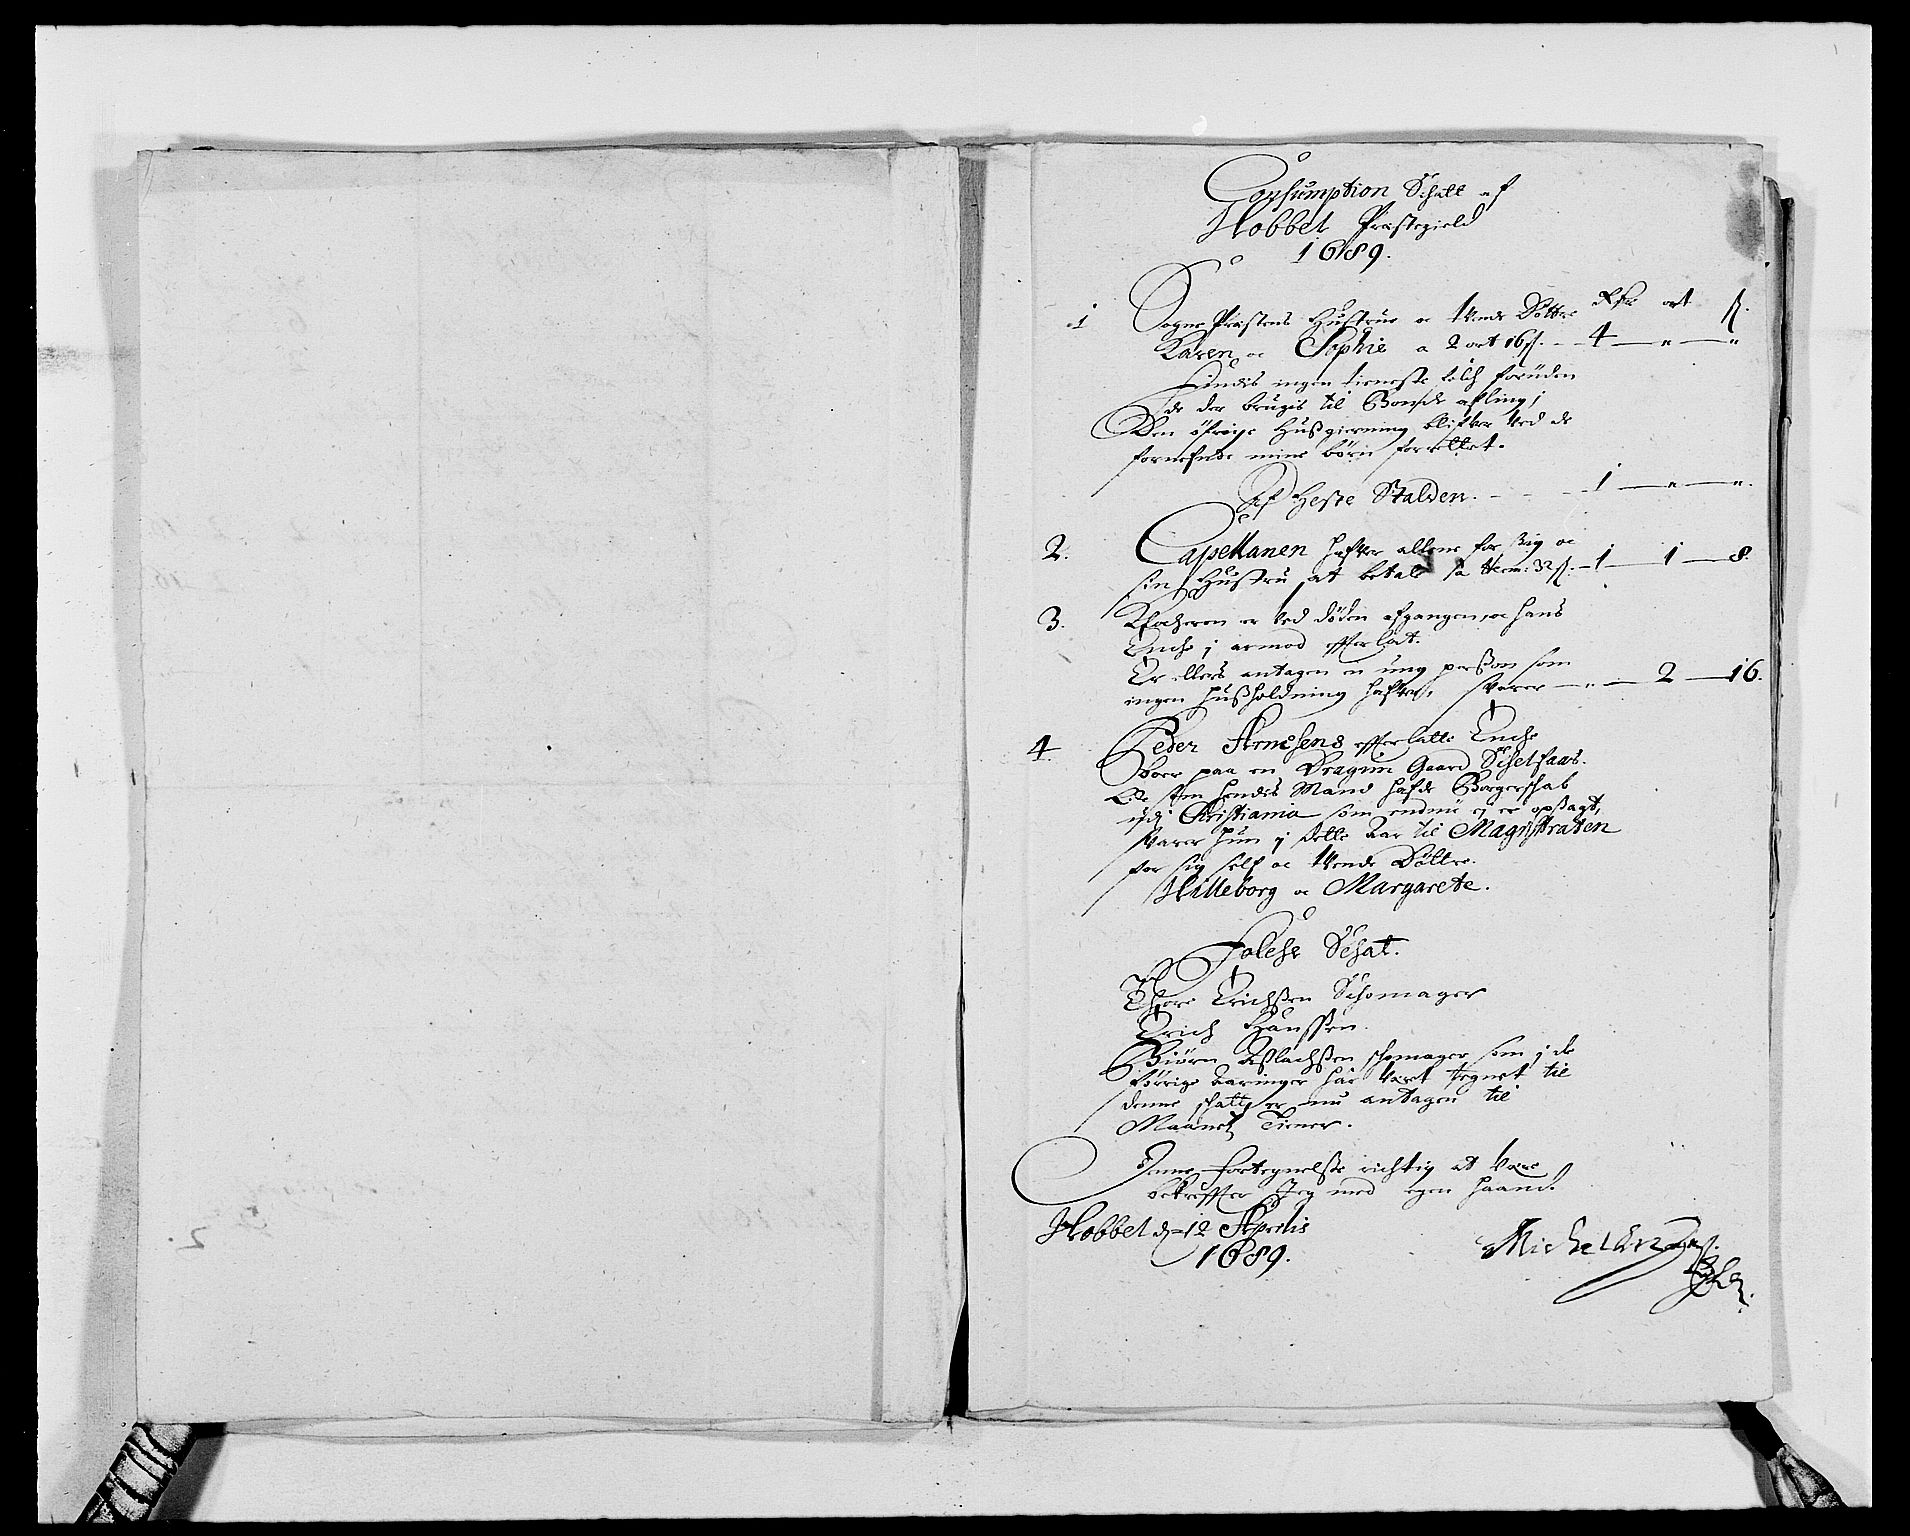 Consumption Schatt af
Hobbel Præstegield
1689.
Rdr ort ß.
1 Sogne Præstens Hustrue oc tvende Døttre
Karen oc Sophie a 2 ort 16 ß. - 4 — " — "
Findis ingen tieneste folch foruden
de der brugis til Bonde afling;
Den öfrige Hußgierning blifver ved de
fornefnde mine börn forrettet.
Af Heste Stalden. - - - 1 — " — ".
2. Capellanen hafver allene for sig oc
sin Hustru at betale 1 — 1 — 8.
3. Klocheren er ved döden afgangen, oc hans
Enche i armod efterlat.
Er ellers antagen en ung person som
ingen hußholdning hafver, svarer — " — 2 — 16.
4. Peder Arnesens efterlatte Enche
boer paa en Dragun Gaard
hendis Mand hafde Borgerschab
udi Christiania som endnu ej er opsagt,
svarer hun i dette Aar til Magistraten
for sig self oc tvende Döttre.
Hilleborg oc Margarete.
Folche Schat.
Thore Erichßen Schomager
Erich Hanssen.
Biörn Aßlachßen schomager som i de
forrige Aaringer har vært tegnet til
denne schatt, er nu antagen til
Maanet Tiener.
Denne fortegnelse richtig at være
bekreffter Jeg med egen haand.
Hobbel d. 12 Aprilis
1689.